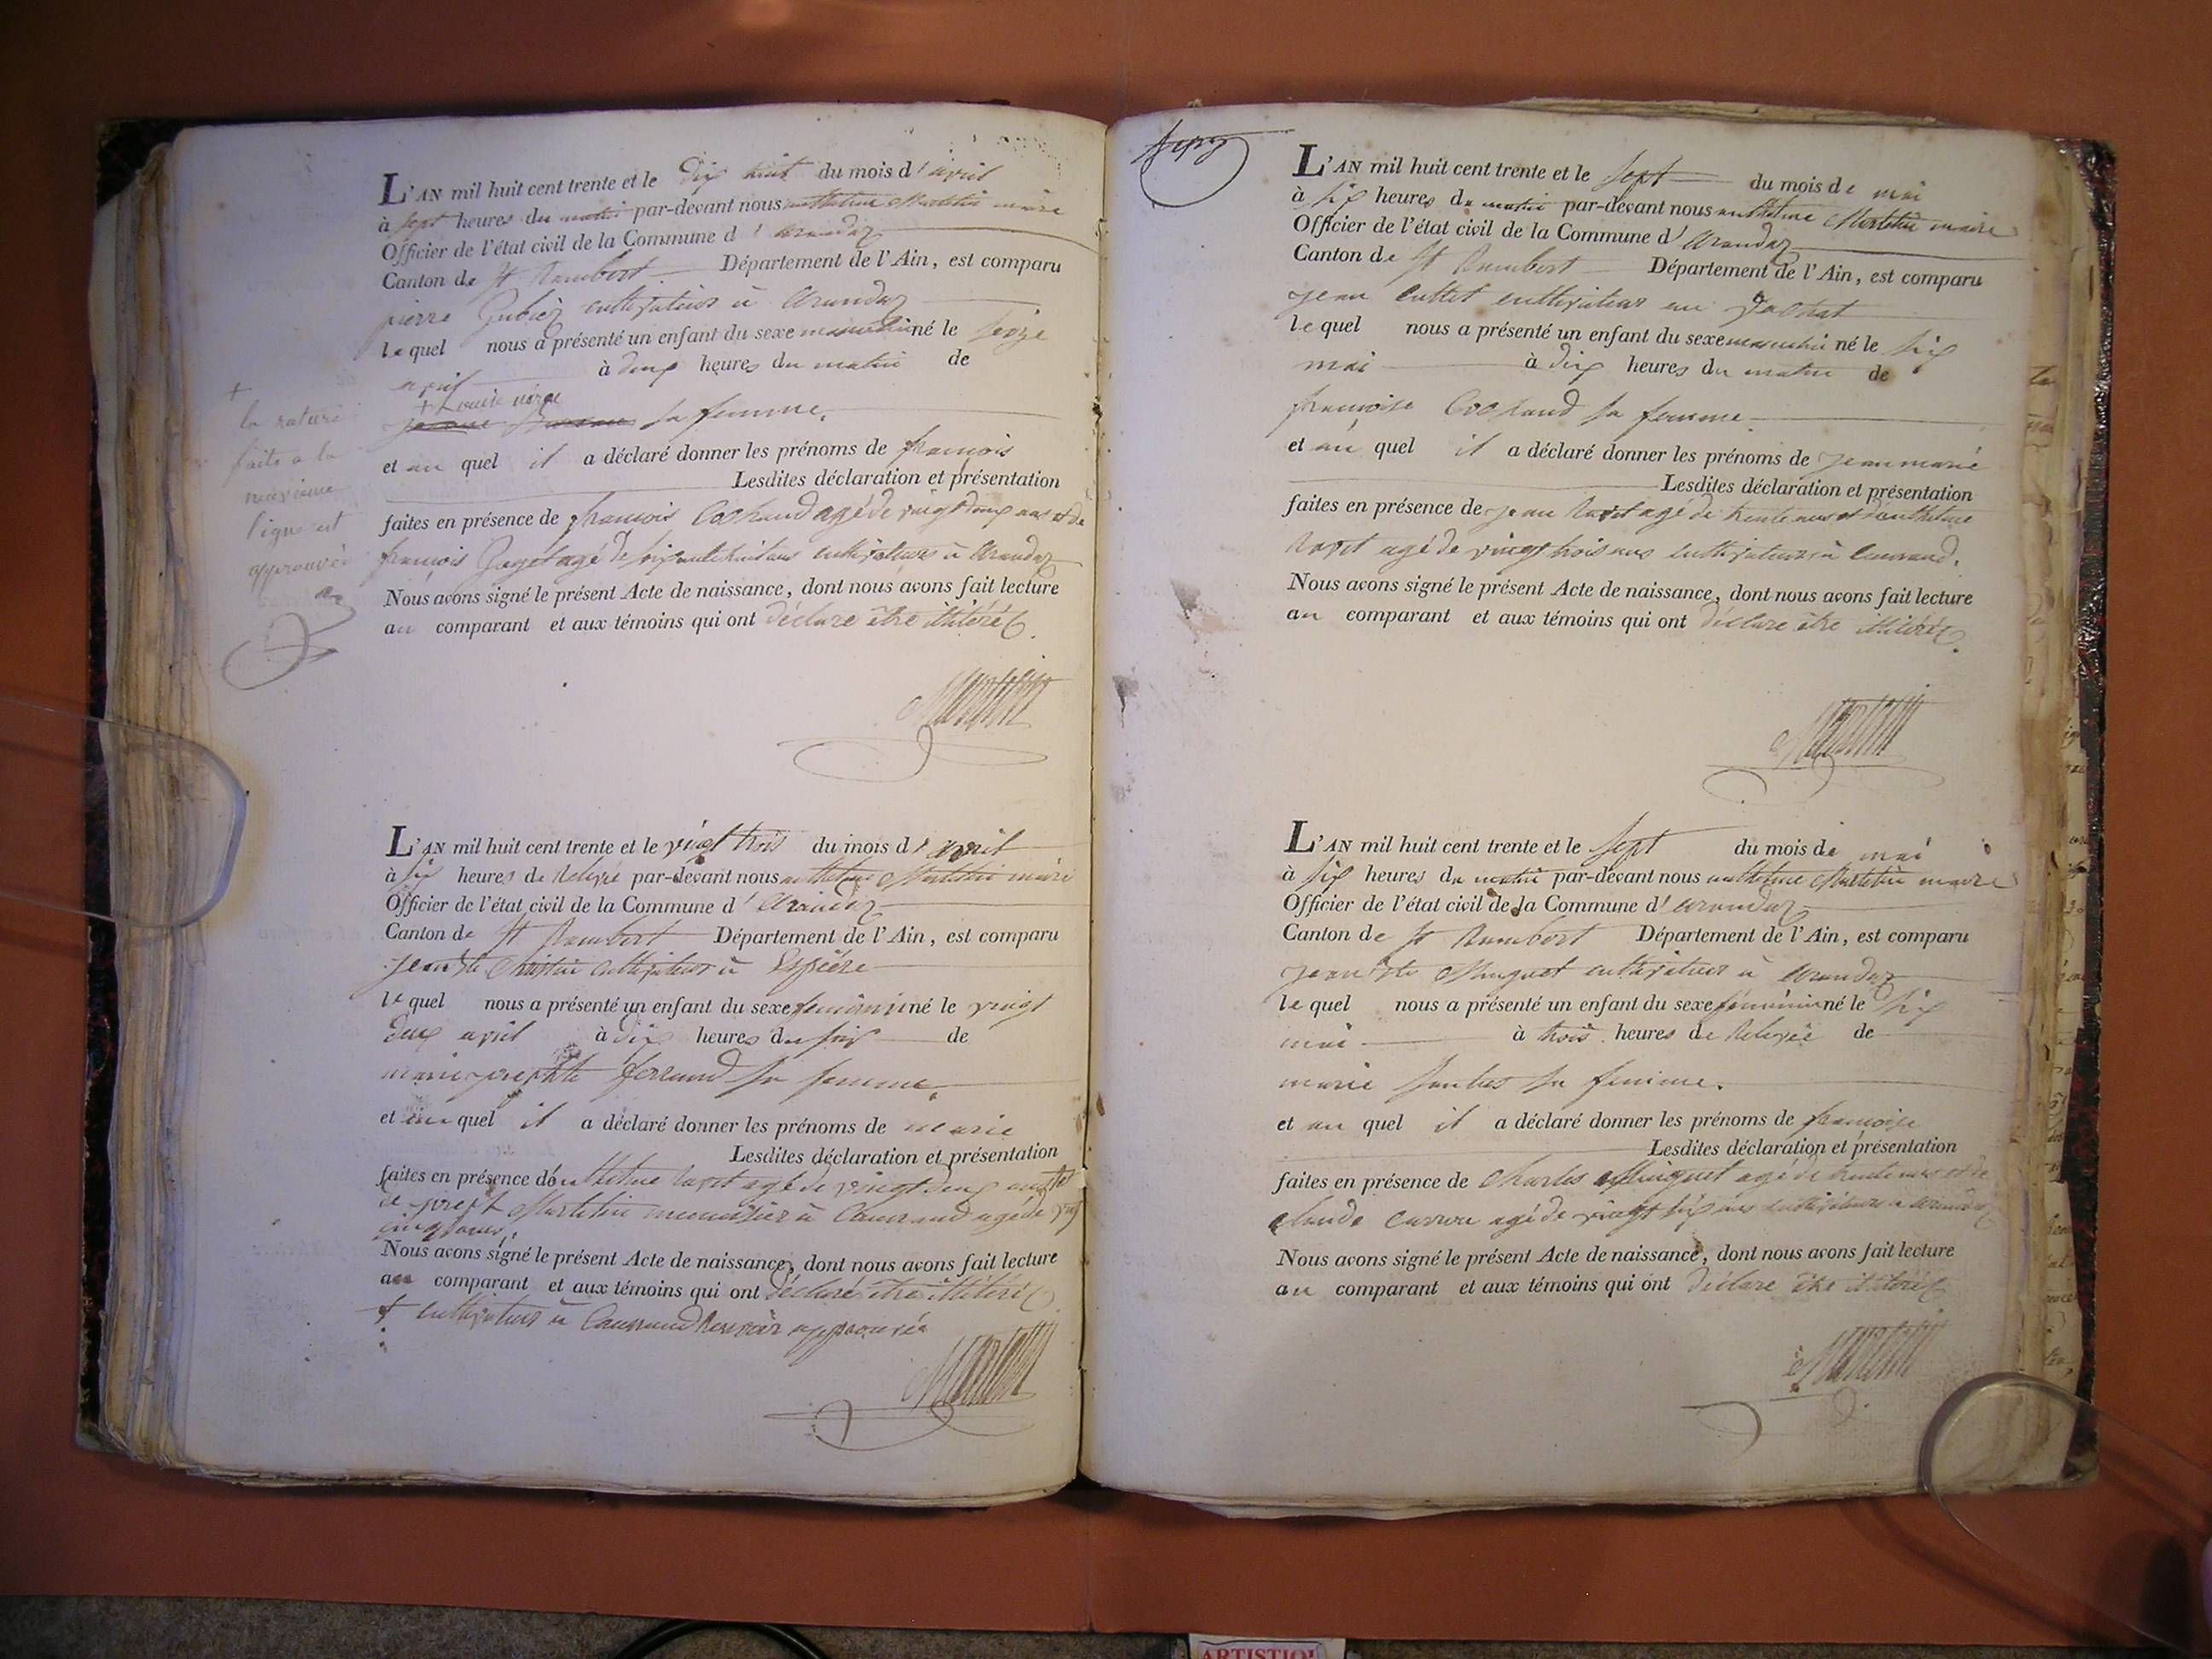 L'AN mil huit cent trente et le dix huit du mois d'avril
à sept heures du matin par-devant nous anthelme Martelin maire
Officier de l'état civil de la Commune d'arandaz
Canton de St Rambert Département de l'Ain, est comparu
pierre cultivateur à arandaz
lequel nous a présenté un enfant du sexe masculin né le seize
avril à deux heures du matin de
+ Louise
sa femme.
et au quel il a déclaré donner les prénoms de françois
Lesdites déclaration et présentation
faites en présence de francois Cochaud agé de vingt deux ans et de
francois agé de soixante huit ans cultivateurs à arandaz
Nous avons signé le présent Acte de naissance, dont nous avons fait lecture
au comparant et aux témoins qui ont déclaré être illitérés.
+
la rature
faite a la
neuvieme
ligne est
approuvée
Martelin
L'AN mil huit cent trente et le vingt trois du mois d'avril
à six heures de relevée par-devant nous anthelme Martelin maire
Officier de l'état civil de la Commune d'arandaz
Canton de St Rambert Département de l'Ain, est comparu
jean Bte cultivateur à
lequel nous a présenté un enfant du sexe feminin né le vingt
deux avril à dix heures du soir de
marie josephte ferrand sa femme.
et au quel il a déclaré donner les prénoms de marie
Lesdites déclaration et présentation
faites en présence d'anthelme agé de vingt deux ans + et
de joseph Martelin à agé de vingt
cinq ans.
Nous avons signé le présent Acte de naissance, dont nous avons fait lecture
au comparant et aux témoins qui ont déclaré être illitérés
+ cultivateur à renvoi approuvée
Martelin
L'AN mil huit cent trente et le sept du mois de mai
à six heures du matin par-devant nous anthelme Martelin maire
Officier de l'état civil de la Commune d'arandaz
Canton de St Rambert Département de l'Ain, est comparu
jean cuttet cultivateur au
lequel nous a présenté un enfant du sexe masculin né le six
mai à dix heures du matin de
francoise Cochaud sa femme
et au quel il a déclaré donner les prénoms de jean marie
Lesdites déclaration et présentation
faites en présence de jean agé de trente ans et d'anthelme
agé de vingt trois ans cultivateurs à
Nous avons signé le présent Acte de naissance, dont nous avons fait lecture
au comparant et aux témoins qui ont déclaré être illitérés.
Martelin
L'AN mil huit cent trente et le sept du mois de mai
à six heures du matin par-devant nous anthelme Martelin maire
Officier de l'état civil de la Commune d'arandaz
Canton de St Rambert Département de l'Ain, est comparu
jean Bte Minguet cultivateur à arandaz
lequel nous a présenté un enfant du sexe féminin né le six
mai à trois heures de relevée de
marie sa femme.
et au quel il a déclaré donner les prénoms de francoise
Lesdites déclaration et présentation
faites en présence de Charles Minguet agé de trente ans et de
claude agé de vingt six ans cultivateurs à arandaz
Nous avons signé le présent Acte de naissance, dont nous avons fait lecture
au comparant et aux témoins qui ont déclaré être illitérés
Martelin